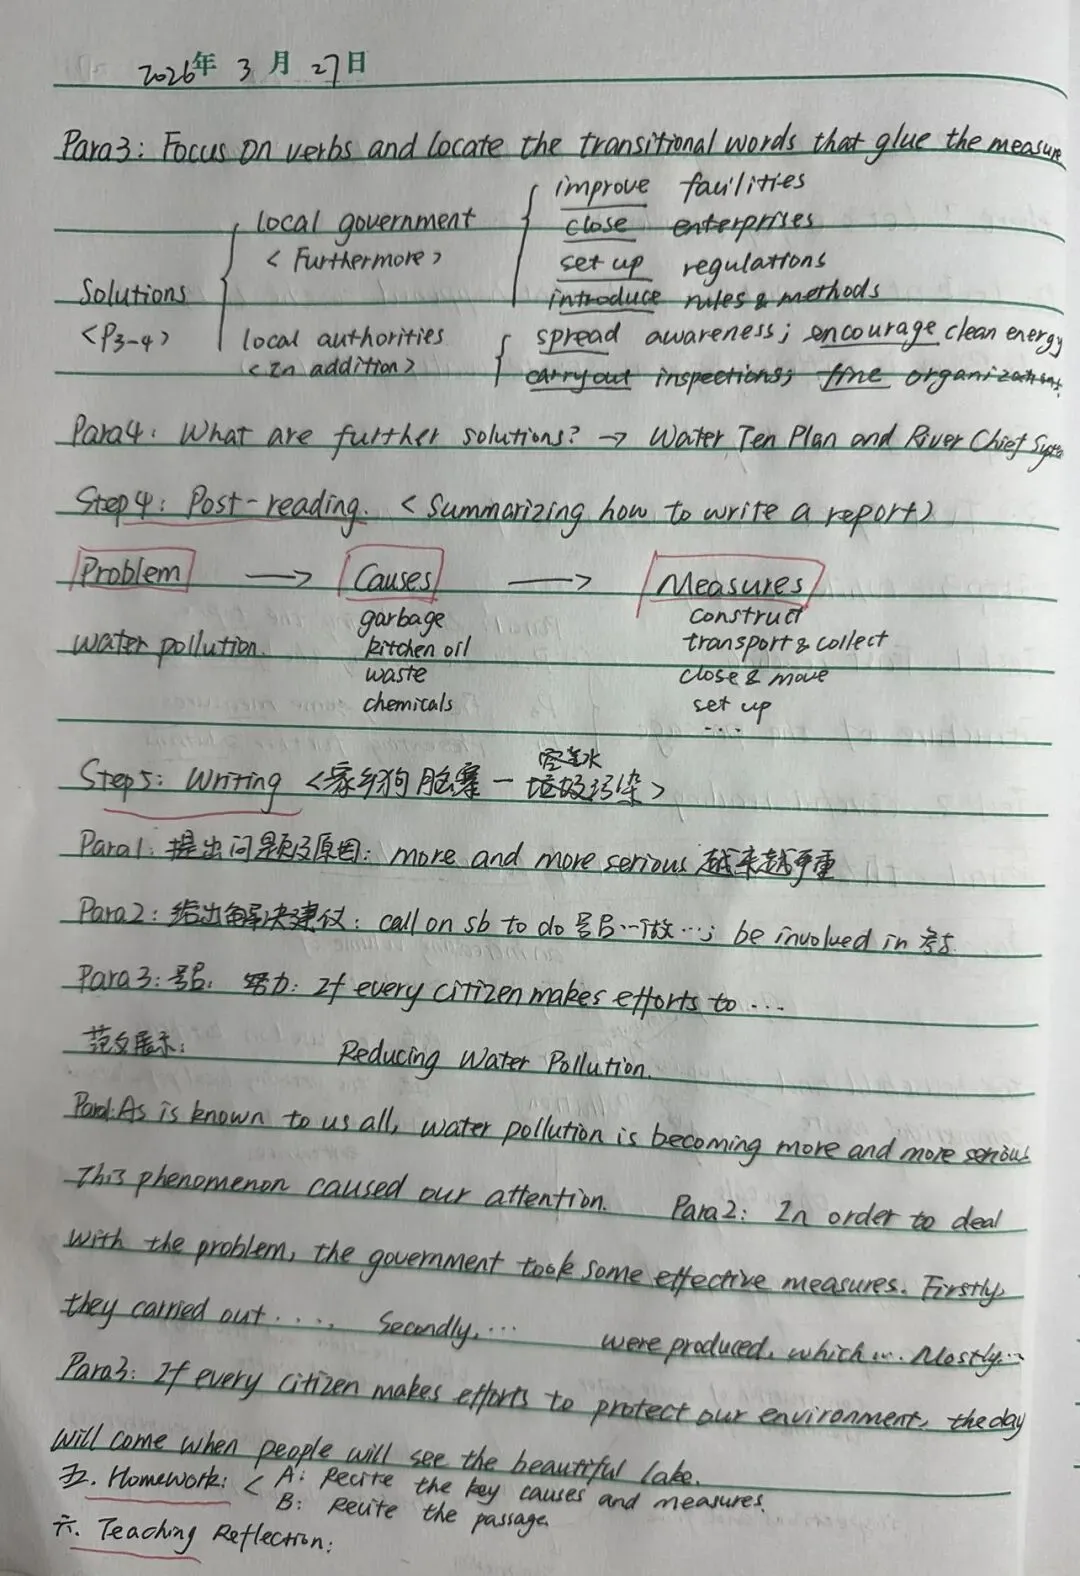 2026年 3 月 27日
Para3: Focus on verbs and locate the transitional words that glue the measure
improve facilities
local government
close enterprises
< Furthermore >
set up regulations
Solutions
introduce rules & methods
<P3-4>
local authorities
spread awareness; encourage clean energy
<In addition>
carryout inspections; fine organizations.
Para4: What are further solutions? → Water Ten Plan and River Chief System
Step4: Post-reading. <Summarizing how to write a report>
Problem → Causes → Measures
garbage construct
water pollution. kitchen oil transport & collect
waste close & move
chemicals set up
...
Step5: Writing <家乡 一 垃圾污染>
Para1: 提出问题及原因: more and more serious 越来越严重
Para2: 给出解决建议: call on sb to do 号召…做…; be involved in 参与
Para3: 号召: 努力: If every citizen makes efforts to ...
范文展示: Reducing Water Pollution.
Para1: As is known to us all, water pollution is becoming more and more serious
This phenomenon caused our attention. Para2: In order to deal
with the problem, the government took some effective measures. Firstly,
they carried out ...., Secondly, ... were produced, which .... Mostly...
Para3: If every citizen makes efforts to protect our environment, the day
will come when people will see the beautiful lake.
五. Homework: < A: Recite the key causes and measures.
B: Recite the passage.
六. Teaching Reflection: